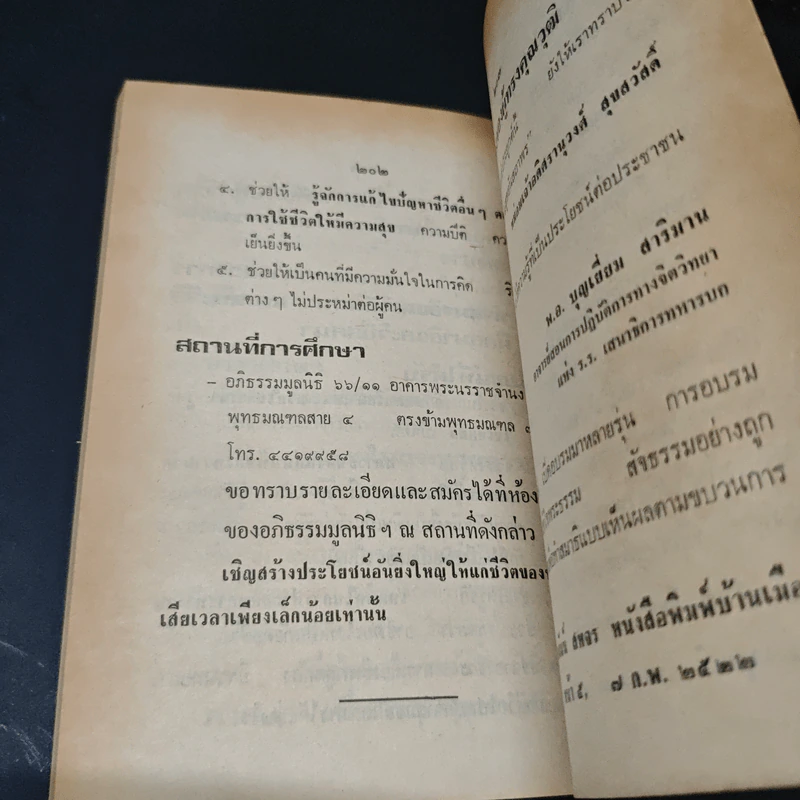 ๒๐๒
๔. ช่วยให้ รู้จักการแก้ไขปัญหาชีวิตอื่นๆ
การใช้ชีวิตให้มีความสุข ความปีติ
เย็นยิ่งขึ้น
๕. ช่วยให้เป็นคนที่มีความมั่นใจในการคิด
ต่างๆ ไม่ประหม่าต่อผู้คน
สถานที่การศึกษา
– อภิธรรมมูลนิธิ ๖๖/๑๑ อาคารพระนรราชจำนง
พุทธมณฑลสาย ๔ ตรงข้ามพุทธมณฑล
โทร. ๔๔๑๙๙๕๘
ขอทราบรายละเอียดและสมัครได้ที่ห้อง
ของอภิธรรมมูลนิธิฯ ณ สถานที่ดังกล่าว
เชิญสร้างประโยชน์อันยิ่งใหญ่ให้แก่ชีวิตของ
เสียเวลาเพียงเล็กน้อยเท่านั้น
ผู้ทรงคุณวุฒิ
ยังให้เราทราบ
หม่อมเจ้าอติศรานุวงศ์ สุขสวัสดิ์
ความรู้ที่เป็นประโยชน์ต่อประชาชน
พ.อ. บุญเยี่ยม สาริมาน
อาจารย์สอนการปฏิบัติการทางจิตวิทยา
แห่ง ร.ร. เสนาธิการทหารบก
เปิดอบรมมาหลายรุ่น การอบรม
พระธรรม สัจธรรมอย่างถูก
ทำสมาธิแบบเห็นผลตามขบวนการ
สหจร หนังสือพิมพ์บ้านเมือ
๗ ก.พ. ๒๕๒๒